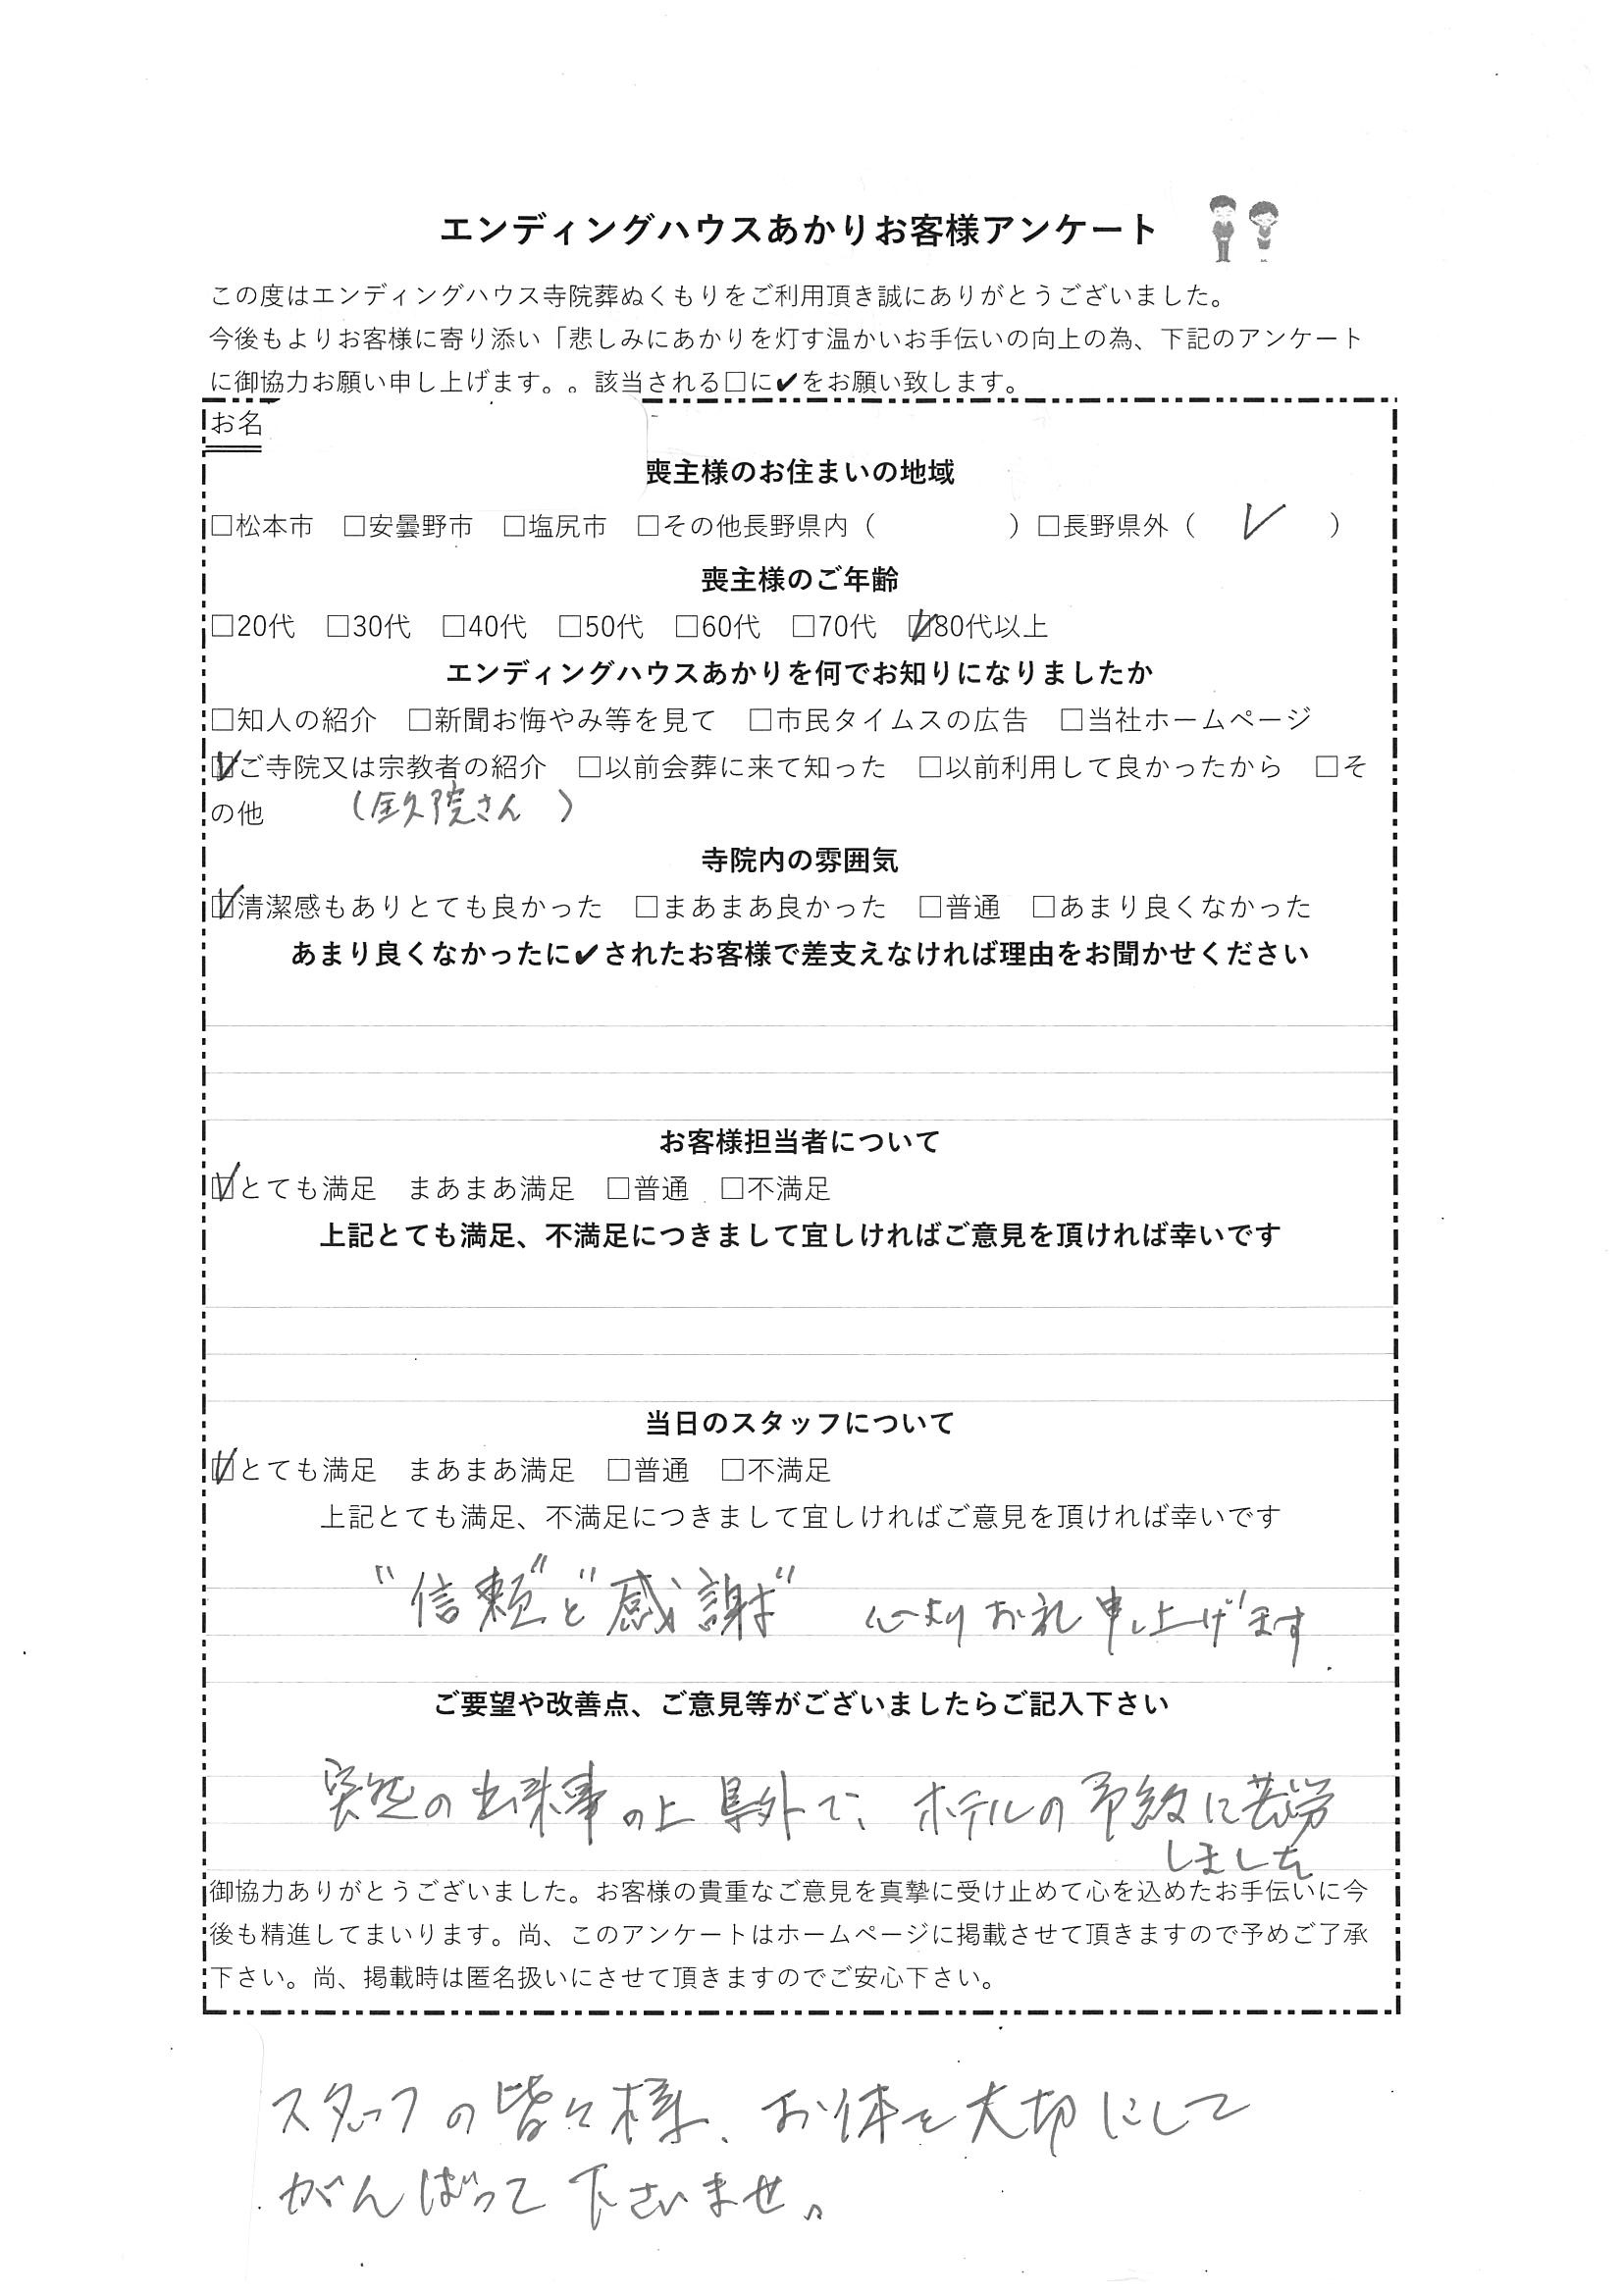 エンディングハウスあかりお客様アンケート
この度はエンディングハウス寺院葬ぬくもりをご利用頂き誠にありがとうございました。
今後もよりお客様に寄り添い「悲しみにあかりを灯す温かいお手伝いの向上の為、下記のアンケート
に御協力お願い申し上げます。。該当される□に✔をお願い致します。
お名
喪主様のお住まいの地域
□松本市 □安曇野市 □塩尻市 □その他長野県内（ ）□長野県外（ ✓ ）
喪主様のご年齢
□20代 □30代 □40代 □50代 □60代 □70代 ☑80代以上
エンディングハウスあかりを何でお知りになりましたか
□知人の紹介 □新聞お悔やみ等を見て □市民タイムスの広告 □当社ホームページ
☑ご寺院又は宗教者の紹介 □以前会葬に来て知った □以前利用して良かったから □そ
の他 （院さん）
寺院内の雰囲気
☑清潔感もありとても良かった □まあまあ良かった □普通 □あまり良くなかった
あまり良くなかったに✔されたお客様で差支えなければ理由をお聞かせください
お客様担当者について
☑とても満足 まあまあ満足 □普通 □不満足
上記とても満足、不満足につきまして宜しければご意見を頂ければ幸いです
当日のスタッフについて
☑とても満足 まあまあ満足 □普通 □不満足
上記とても満足、不満足につきまして宜しければご意見を頂ければ幸いです
"信頼"と"感謝" 心よりお礼申し上げます.
ご要望や改善点、ご意見等がございましたらご記入下さい
突然の出来事の上県外で、ホテルの予約に苦労
しました
御協力ありがとうございました。お客様の貴重なご意見を真摯に受け止めて心を込めたお手伝いに今
後も精進してまいります。尚、このアンケートはホームページに掲載させて頂きますので予めご了承
下さい。尚、掲載時は匿名扱いにさせて頂きますのでご安心下さい。
スタッフの皆々様、お体を大切にして
がんばって下さいませ。